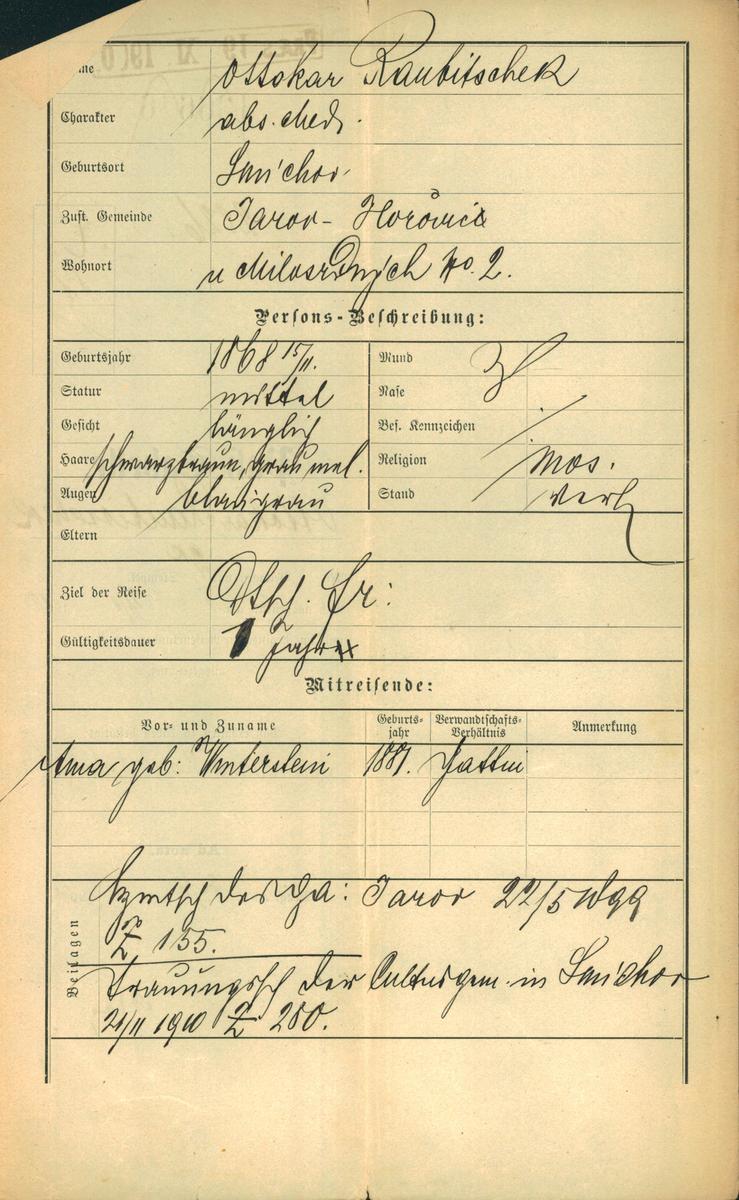 me Ottokar Raubitschek
Charakter abs. Med.
Geburtsort Smichov
Zust. Gemeinde Jarov - Hořovic
Wohnort u Milosrdných No. 2.
Persons-Beschreibung:
Geburtsjahr 1868 15/11. Mund
Statur mittel Nase
Gesicht länglich Bes. Kennzeichen /
Haare schwarzbraun, grau mel. Religion mos.
Augen blaugrau Stand verh
Eltern
Ziel der Reise Dtsch.
Gültigkeitsdauer 1 Jahr
Mitreisende:
Vor- und Zuname Geburts-jahr Verwandtschafts-Verhältnis Anmerkung
geb: Winterstein 1881. Gattin
Beilagen
des Jarov 22/5 1899
Z 155.
Trauungssch der Cultusgem. in Smichov
21/11 1910 Z 280.